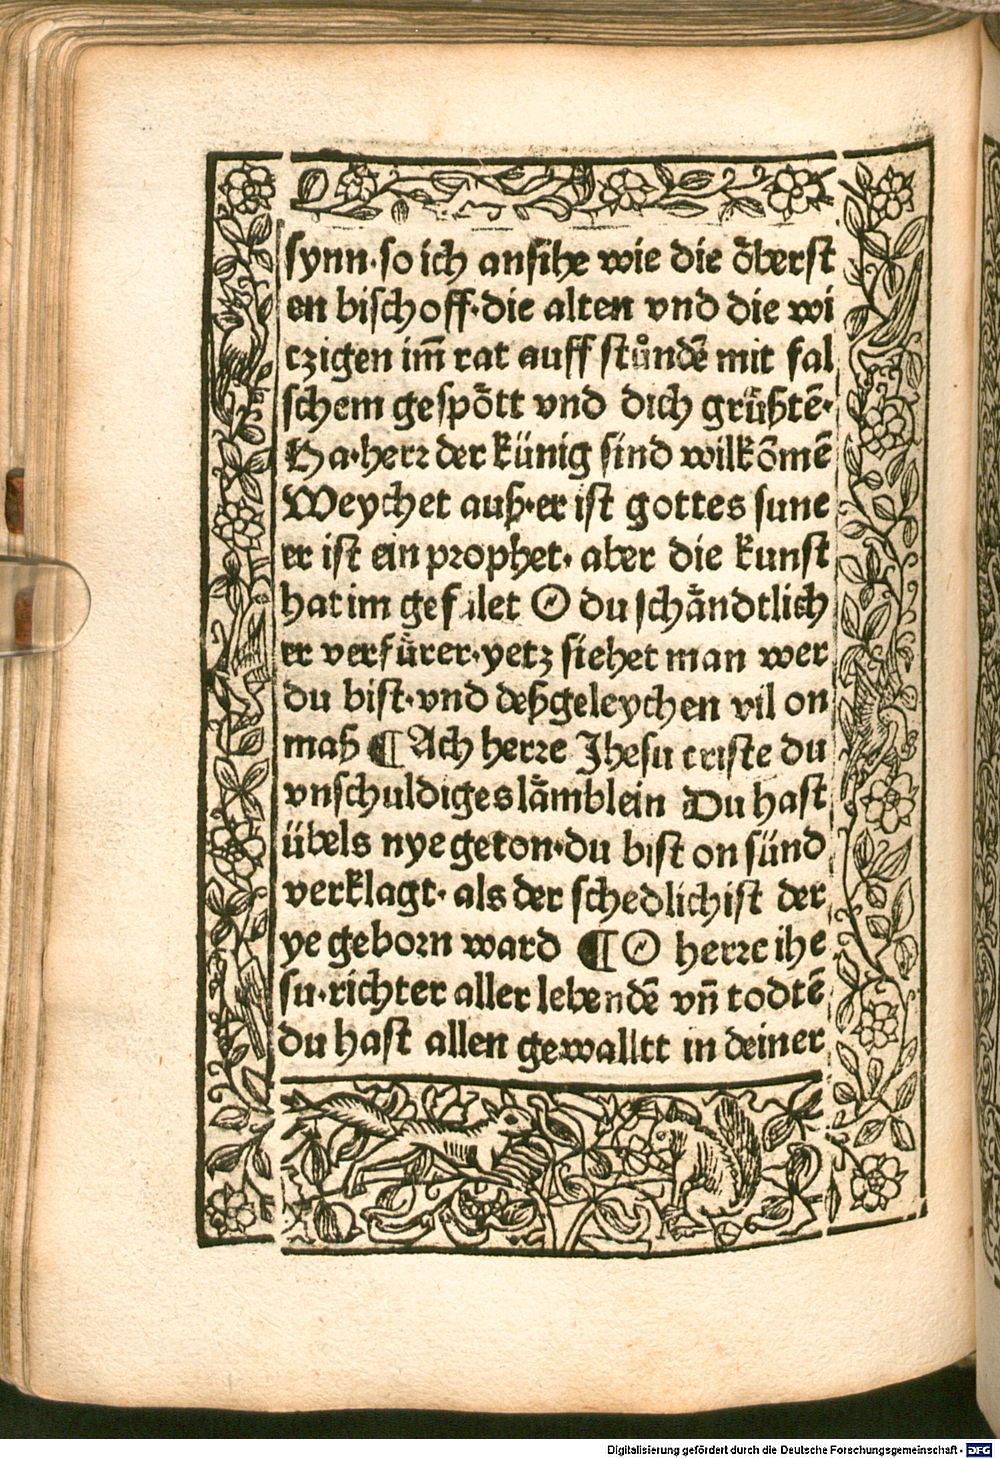 synn·so ich ansihe wie die oͤberst
en bischoff·die alten vnd die wi
czigen im̄ rat auff stůndē mit fal
schem gespoͤtt vnd dich gruͤßtē·
Ha·herr der künig sind wilkōmē
Weychet auß·er ist gottes sune
er ist ein prophet· aber die kunst
hat im gefålet O du schaͤndtlich
er verfuͤrer·yetz siehet man wer
du bist·vnd deßgeleychen vil on
maß ¶ Ach herre Jhesu criste du
vnschuldiges laͤmblein Du hast
übels nye geton·du bist on sünd
verklagt· als der schedlichist der
ye geborn ward ¶ O herre ihe
su·richter aller lebendē vn̄ todtē
du hast allen gewalltt in deiner
Digitalisierung gefördert durch die Deutsche Forschungsgemeinschaft - DFG